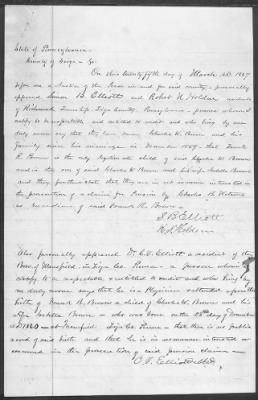 State of Pennsylvania
County of Tioga
On this twenty fifth day of March A.D. 1867
before me a Justice of the Peace in and for said county personally
appeared Simon B. Elliott and Robert
of Richmond Township Tioga County Pennsylvania persons whom I
certify to be respectable and entitled to credit and who being by me
duly sworn say that they have known Charles K. Brown and his
family since his marriage in December 1859 that Frank
R. Brown is the only legitimate child of said Charles K. Brown
and is the son of said Charles K. Brown and his wife Isabella Brown
and they further state that they are in no manner interested in
the prosecution of a claim for Pension by Charles
as Guardian of said Frank R. Brown
S. B. Elliott
Also personally appeared Dr. C. V. Elliott a resident of the
Boro of Mansfield in Tioga Co. Penna a person whom I
certify to be respectable entitled to credit and who being by
me duly sworn says that he is a Physician attended upon the
birth of Frank R. Brown a child of Charles K. Brown and his
wife Isabella Brown who was born on the day of December
A.D. at Mansfield Tioga Co. Penna that there is no public
record of said birth and that he is in no manner interested or
concerned in the prosecution of said pension claim
C. V. Elliott M.D.